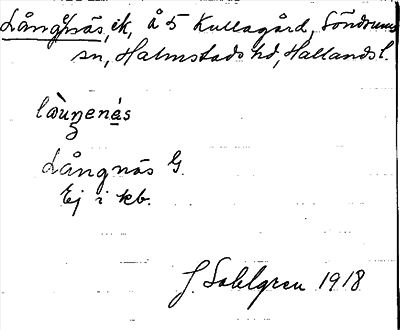 Långnäs, ek, Å 5 Kullagård, Söndrums
sn, Halmstads hd, Hallands l.
Långnäs G.
Ej i kb.
J. Sahlgren 1918